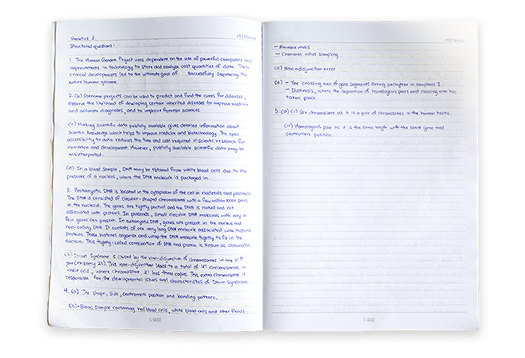 Genetics 2
Structured questions:
1. The Human Genome Project was dependent on the use of powerful computers and
improvements in technology to store and analyse vast quantities of data. These
crucial developments led to the ultimate goal of successfully sequencing the
entire human genome.
2. (b) Genome projects can be used to predict and find the cures for diseases,
observe the likelihood of developing certain inherited diseases to improve medicine
and accurate diagnoses, and to improve forensic sciences.
(c) Making scientific data publicly available gives detailed information about
scientific knowledge which helps to improve medicine and biotechnology. The open
accessibility to data reduces the time and cost required in scientific research for
innovation and development. However, publicly available scientific data may be
misinterpreted.
(d) In a blood sample, DNA may be obtained from white blood cells due to the
presence of a nucleus, where the DNA molecule is packaged in.
3. Prokaryotic DNA is located in the cytoplasm of the cell as nucleoids and plasmids.
The DNA is consisted of circular-shaped chromosome with a few million base pairs
in the nucleoid. The genes are tightly packed and the DNA is naked and not
associated with protein. In plasmids, small circular DNA molecules with only a
few genes are present. In eukaryotic DNA, genes are present in the nucleus and
non-coding DNA. It consists of one very long DNA molecule associated with histone
proteins. These histones organise and wrap the DNA molecule tightly to fit in the
nucleus. This tightly-coiled combination of DNA and protein is known as chromatin.
(b) Down Syndrome is caused by the non-disjunction of chromosomes in the 21st
pair (trisomy 21). This non-disjunction leads to a total of 47 chromosomes in
their cells, where chromosome 21 has three copies. This extra chromosome is
responsible for the developmental issues and characteristics of Down syndrome.
4. (a) The shape, size, centromere position and banding pattern.
(b) - Blood sample containing red blood cells, white blood cells and other fluids.
- Amniocentesis
- Chorionic villus sampling
(c) Non-disjunction error
(d) - The crossing over of gene segments during prophase I
5. (a) (i) Sex chromosome as it is a pair of chromosomes in the human testes.
(ii) Homologous pair as it is the same length with the same gene and
centromere position.